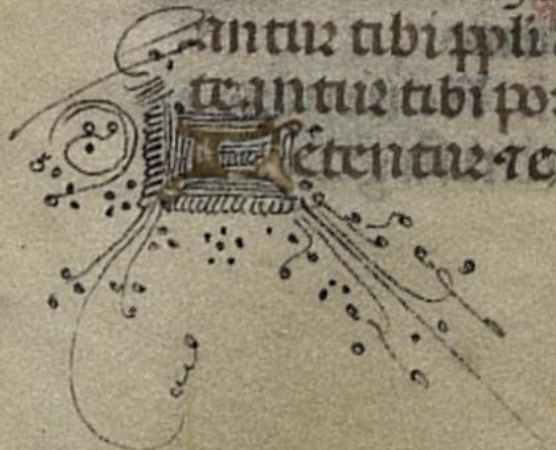 antur tibi ppli
teantur tibi po
Letentur ⁊ e